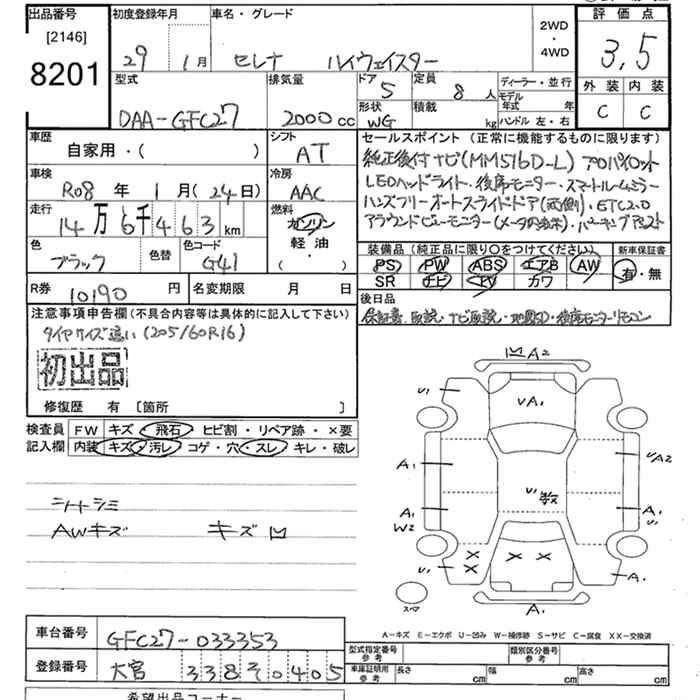 出品番号 初度登録年月 車名・グレード 2WD・4WD 評価点
[2146] 8201 29年 1月 セレナ ハイウェイスター 3,5
型式 排気量 ドア 5 定員 8人 ディーラー・並行 外装 内装
DAA-GFC27 2000cc 形状 WG 積載 kg モデル年式 年 ハンドル 左・右 C C
車歴 シフト セールスポイント (正常に機能するものに限ります)
自家用・( ) AT 純正後付ナビ(MM516D-L) プロパイロット
車検 冷房 LEDヘッドライト・後席モニター・スマートルームミラー
R08年 1月(24日) AAC ハンズフリーオートスライドドア(両側)・ETC2.0
走行 燃料 アラウンドビューモニター
14万6千463km ガソリン
軽油
( )
色 色替 色コード 装備品 (純正品に限り○をつけてください) 新車保証書
ブラック G41 PS PW ABS エアB AW 有・無
SR ナビ TV カワ
R券 10190円 名変期限 月 日 後日品
注意事項申告欄(不具合内容等は具体的に記入して下さい) 保証書 取説・ナビ取説・地図SD・後席モニターリモコン
タイヤサイズ違い(205/60R16)
初出品
修復歴 有 〔箇所 〕
検査員記入欄 FW キズ・飛石・ヒビ割・リペア跡・×要
内装 キズ・汚レ・コゲ・穴・スレ・キレ・破レ
シートシミ
AWキズ キズ凹
凹A2
U1 UA1
A1 UA2
U キズ
A1 W2 A1 U1
× × × ×
U1 A1
スペア A1
A-キズ E-エクボ U-凹み W-補修跡 S-サビ C-腐食 XX-交換済
車台番号 GFC27-033353
登録番号 大宮 338 そ 0405
型式指定番号 参考 類別区分番号 参考
車庫証明用 参考 長さ cm 幅 cm 高さ cm
希望出品コーナー